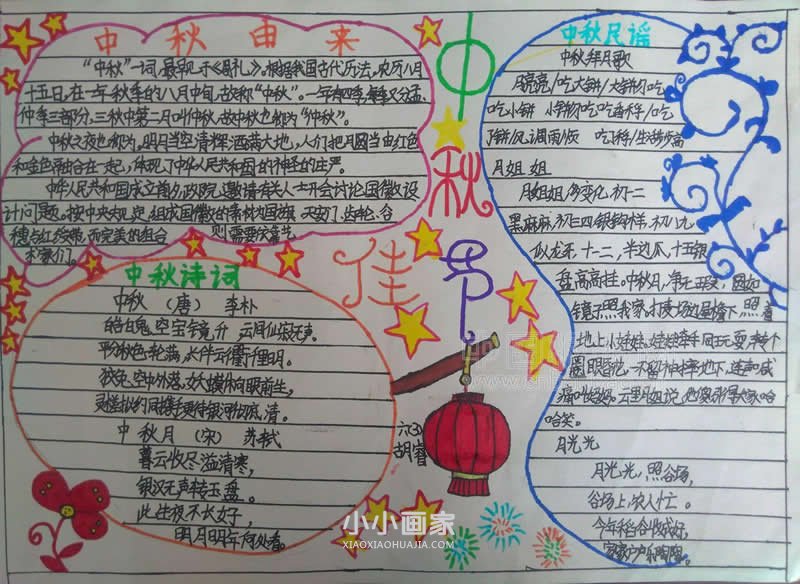 中秋由来
"中秋"一词,最早见于《周礼》。根据我国古代历法,农历八月
十五日,在一年秋季的八月中旬,故称"中秋"。一年有四季,每季又分孟、
仲、季三部分,三秋中第二月叫仲秋,故中秋也称为"仲秋"。
中秋之夜也称为,明月当空清辉洒满大地,人们把月圆当由红色
和金色融合在一起,体现了中华人民共和国的神经的庄严。
中华人民共和国成立前夕,政院邀请有关人士开会讨论国徽设
计问题。按中央规定,组成国徽的素材为国旗、天安门、齿轮、谷
穗与红绶带,而完美的组合 则需要
术家们。
中
秋
佳
节
中秋诗词
中秋 (唐) 李朴
皓白魄空宝镜升,云间仙籁寂无声。
平分秋色一轮满,长伴云衢千里明。
狡兔空中外落,妖蟆休向眼前生。
灵槎拟约同携手更待银河彻底清。
中秋月 (宋) 苏轼
暮云收尽溢清寒,
银汉无声转玉盘。
此生夜不长好,
明月明年何处看。
六(3)
胡睿
中秋民谣
中秋拜月歌
月亮亮/吃大饼/大饼
吃小饼 小饼吃吃香芋/吃
了饼/风调雨顺 吃了芋/生活步步高
月姐姐
月姐姐,多变化,初一二
黑麻麻,初三四银钩样,初八九
似龙牙,十一二,半边瓜,十五银
盘高高挂。中秋月,净无瑕,圆如
镜子照我家,打麦场边屋檐下,照着
地上小娃娃,娃娃牵手同玩耍,转个
圈眼昏花,一不留神摔地下,连声喊
痛叫妈妈。云里月姐说
哈笑。
月光光
月光光,照谷场,
谷场上,农人忙。
今年稻谷收成好,
家家户户乐陶陶。
小小画家
XIAOXIAOHUAJIA.COM